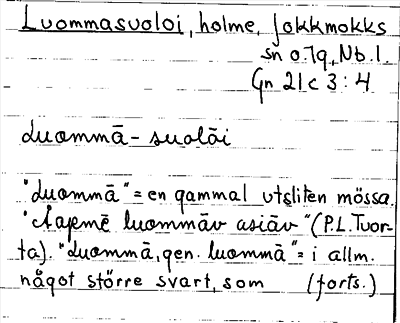 Luommasuoloi, holme, Jokkmokks
sn o. lq, Nb. l.
Gn 21 c 3 : 4
luommā - suolāi
"luommā" = en gammal utsliten mössa.
"Aajemē luommāv asiāv" (P.L. Tuor-
ta). "luommā, gen. luommā" = i allm.
något större svart, som (forts.)